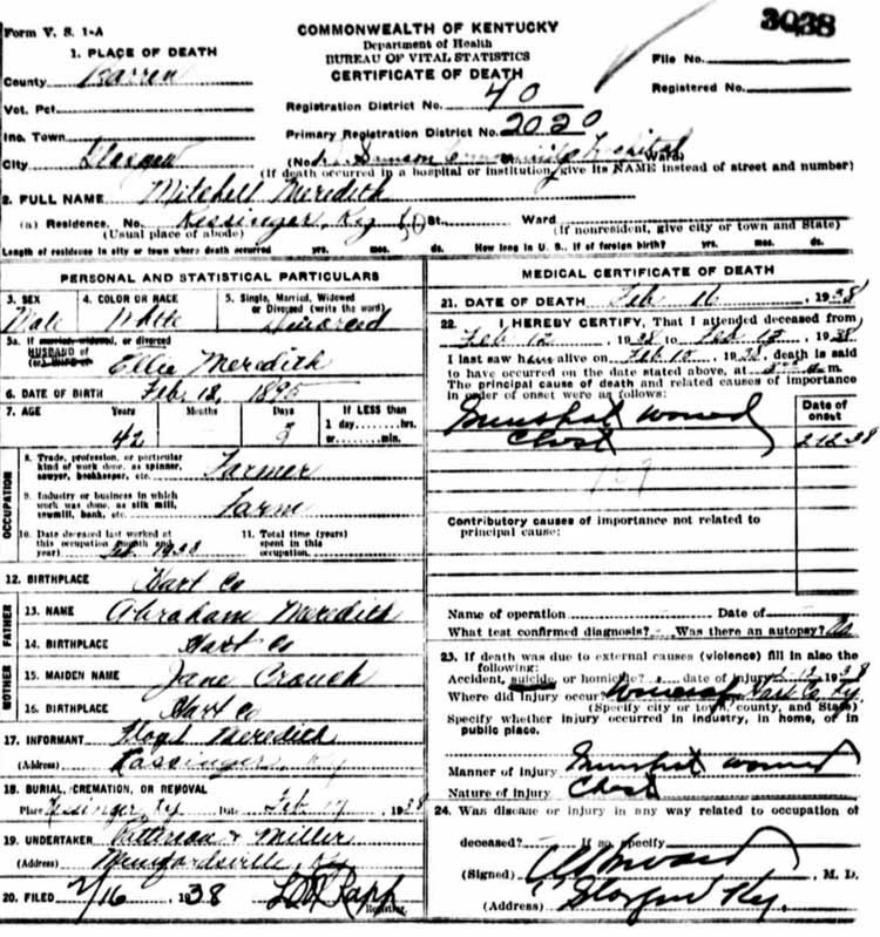 Form V. S. 1-A
COMMONWEALTH OF KENTUCKY
3038
Department of Health
BUREAU OF VITAL STATISTICS
CERTIFICATE OF DEATH
1. PLACE OF DEATH
File No.
County Barren
Registered No.
Vot. Pct.
Registration District No. 40
Inc. Town
Primary Registration District No. 2020
City Glasgow
(No. Samson Community Hospital Ward)
(If death occurred in a hospital or institution, give its NAME instead of street and number)
2. FULL NAME Mitchell Meredith
(a) Residence. No. Kessinger, Ky St. Ward
(Usual place of abode)
(If nonresident, give city or town and State)
Length of residence in city or town where death occurred yrs. mos. ds. How long in U. S., if of foreign birth? yrs. mos. ds.
PERSONAL AND STATISTICAL PARTICULARS
3. SEX
Male
4. COLOR OR RACE
White
5. Single, Married, Widowed
or Divorced (write the word)
Divorced
5a. If married, widowed, or divorced
HUSBAND of
(or) WIFE of Ellie Meredith
6. DATE OF BIRTH Feb. 18, 1895
7. AGE Years Months Days If LESS than
1 day hrs.
or min.
42
OCCUPATION
8. Trade, profession, or particular
kind of work done, as spinner,
sawyer, bookkeeper, etc. Farmer
9. Industry or business in which
work was done, as silk mill,
sawmill, bank, etc. Farm
10. Date deceased last worked at
this occupation (month and
year) Feb. 1938
11. Total time (years)
spent in this
occupation
12. BIRTHPLACE Hart Co
FATHER
13. NAME Abraham Meredith
14. BIRTHPLACE Hart Co
MOTHER
15. MAIDEN NAME Jane Crouch
16. BIRTHPLACE Hart Co
17. INFORMANT Meredith
(Address) Kessinger, Ky
18. BURIAL, CREMATION, OR REMOVAL
Place Kessinger, Ky Date Feb 17, 1938
19. UNDERTAKER Patterson & Miller
(Address) Munfordsville, Ky
20. FILED 2/16 1938
Registrar
MEDICAL CERTIFICATE OF DEATH
21. DATE OF DEATH Feb 16, 1938
22. I HEREBY CERTIFY, That I attended deceased from
Feb 12, 1938 to Feb 15, 1938
I last saw h alive on Feb 15, 1938, death is said
to have occurred on the date stated above, at m.
The principal cause of death and related causes of importance
in order of onset were as follows:
Date of
onset
Gunshot wound
Chest
2-12-38
Contributory causes of importance not related to
principal cause:
Name of operation Date of
What test confirmed diagnosis? Was there an autopsy? No
23. If death was due to external causes (violence) fill in also the
following:
Accident, suicide, or homicide? date of injury 2-12 1938
Where did injury occur? Hart Co Ky.
(Specify city or town, county, and State)
Specify whether injury occurred in industry, in home, or in
public place.
Manner of injury Gunshot wound
Nature of injury Chest
24. Was disease or injury in any way related to occupation of
deceased? If so, specify
(Signed) , M. D.
(Address) Glasgow Ky.